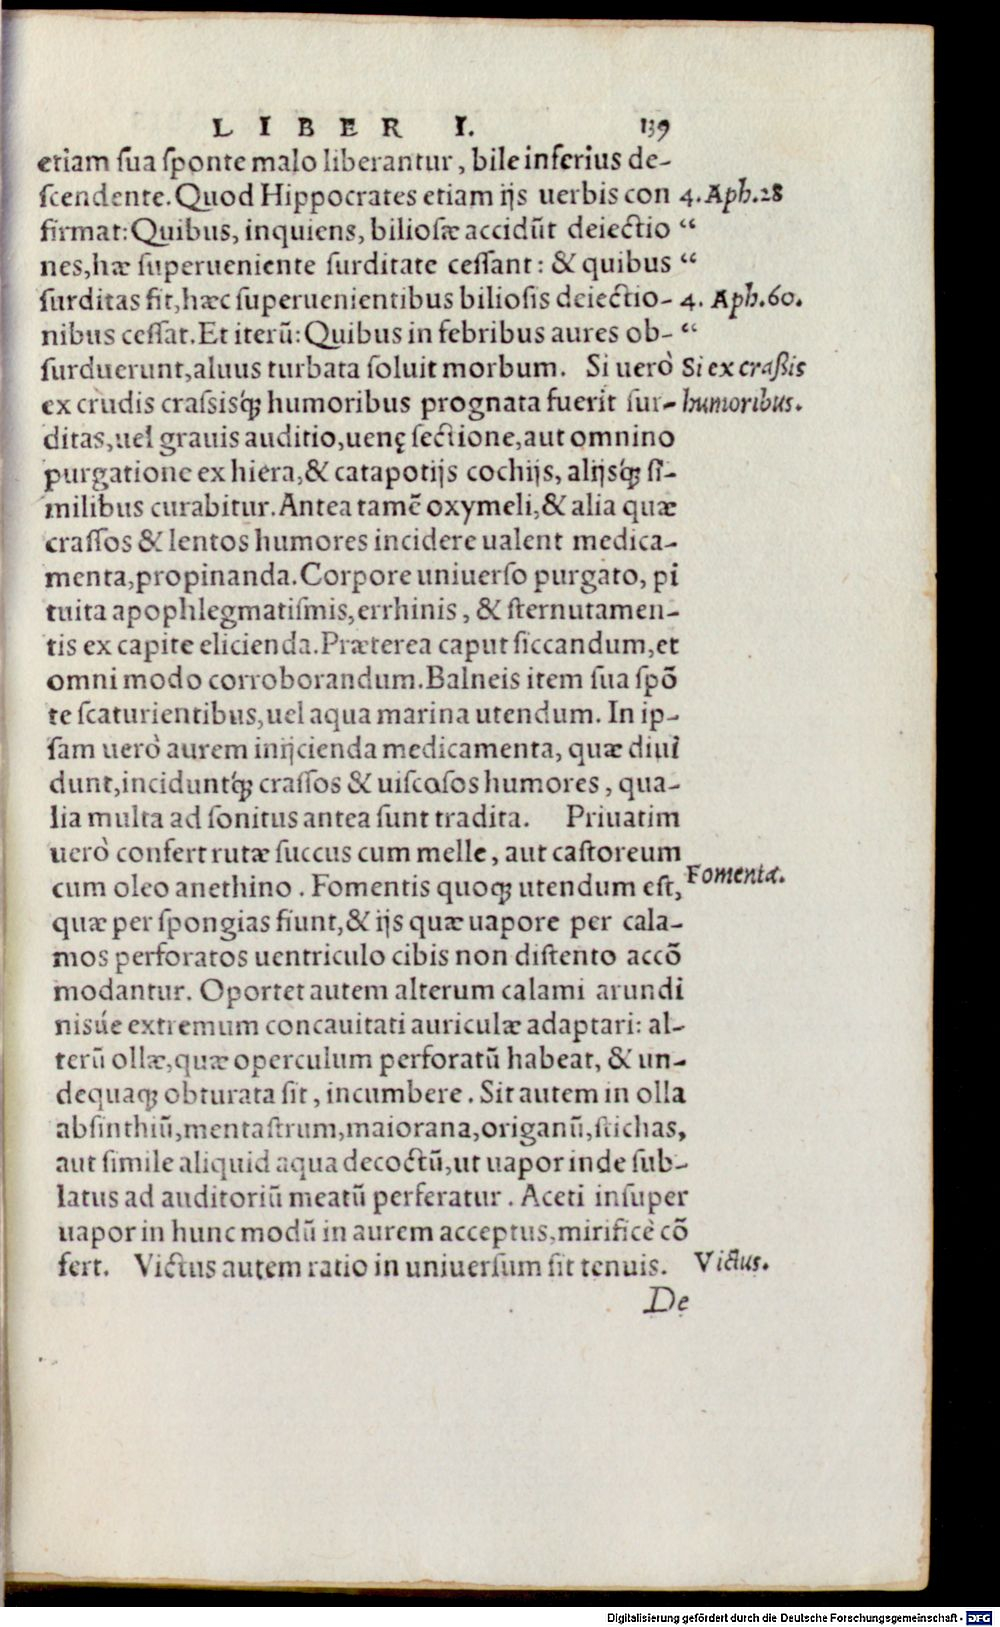 LIBER I. 139
etiam sua sponte malo liberantur, bile inferius de-
scendente. Quod Hippocrates etiam ijs uerbis con 4. Aph. 28
firmat: Quibus, inquiens, biliosæ accidũt deiectio “
nes, hæ superueniente surditate cessant: & quibus “
surditas fit, hæc superuenientibus biliosis deiectio- 4. Aph. 60.
nibus cessat. Et iterũ: Quibus in febribus aures ob- “
surduerunt, aluus turbata soluit morbum. Si uerò Si ex crassis
ex crudis crassisq́; humoribus prognata fuerit sur- humoribus.
ditas, uel grauis auditio, uenę sectione, aut omnino
purgatione ex hiera, & catapotijs cochijs, alijsq́; si-
milibus curabitur. Antea tamẽ oxymeli, & alia quæ
crassos & lentos humores incidere ualent medica-
menta, propinanda. Corpore uniuerso purgato, pi
tuita apophlegmatismis, errhinis, & sternutamen-
tis ex capite elicienda. Præterea caput siccandum, et
omni modo corroborandum. Balneis item sua spõ
te scaturientibus, uel aqua marina utendum. In ip-
sam uerò aurem inijcienda medicamenta, quæ diui
dunt, inciduntq́; crassos & uiscosos humores, qua-
lia multa ad sonitus antea sunt tradita. Priuatim
uerò confert rutæ succus cum melle, aut castoreum
cum oleo anethino. Fomentis quoq; utendum est, Fomenta.
quæ per spongias fiunt, & ijs quæ uapore per cala-
mos perforatos uentriculo cibis non distento accõ
modantur. Oportet autem alterum calami arundi
nisúe extremum concauitati auriculæ adaptari: al-
terũ ollæ, quæ operculum perforatũ habeat, & un-
dequaq; obturata sit, incumbere. Sit autem in olla
absinthiũ, mentastrum, maiorana, origanũ, stichas,
aut simile aliquid aqua decoctũ, ut uapor inde sub-
latus ad auditoriũ meatũ perferatur. Aceti insuper
uapor in hunc modũ in aurem acceptus, mirificè cõ
fert. Victus autem ratio in uniuersum sit tenuis. Victus.
De
Digitalisierung gefördert durch die Deutsche Forschungsgemeinschaft - DFG